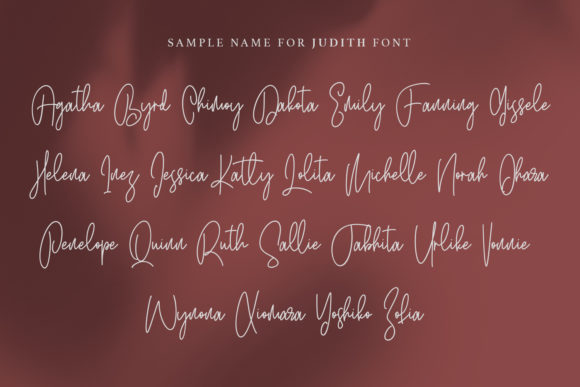 SAMPLE NAME FOR JUDITH FONT
Agatha Byrd Chimoy Dakota Emily Fanning Gissele
Helena Inez Jessica Kattly Lolita Michelle Norah Ohara
Penelope Quinn Ruth Sallie Tabhita Urlike Vonnie
Wynona Xiomara Yoshiko Zofia